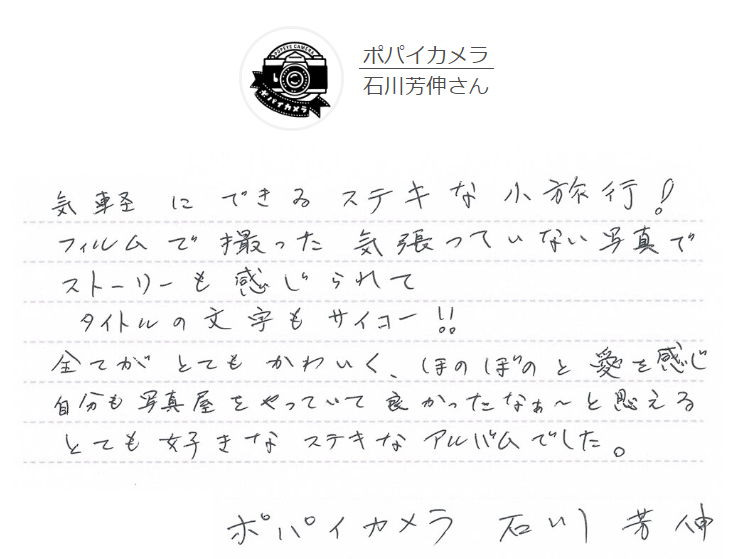 POPEYE CAMERA
ポパイカメラ
ポパイカメラ
石川芳伸さん
気軽にできるステキな小旅行!
フィルムで撮った気張っていない写真で
ストーリーも感じられて
タイトルの文字もサイコー!!
全てがとてもかわいく、ほのぼのと愛を感じ
自分も写真屋をやっていて良かったなぁ〜と思える
とても好きなステキなアルバムでした。
ポパイカメラ 石川芳伸